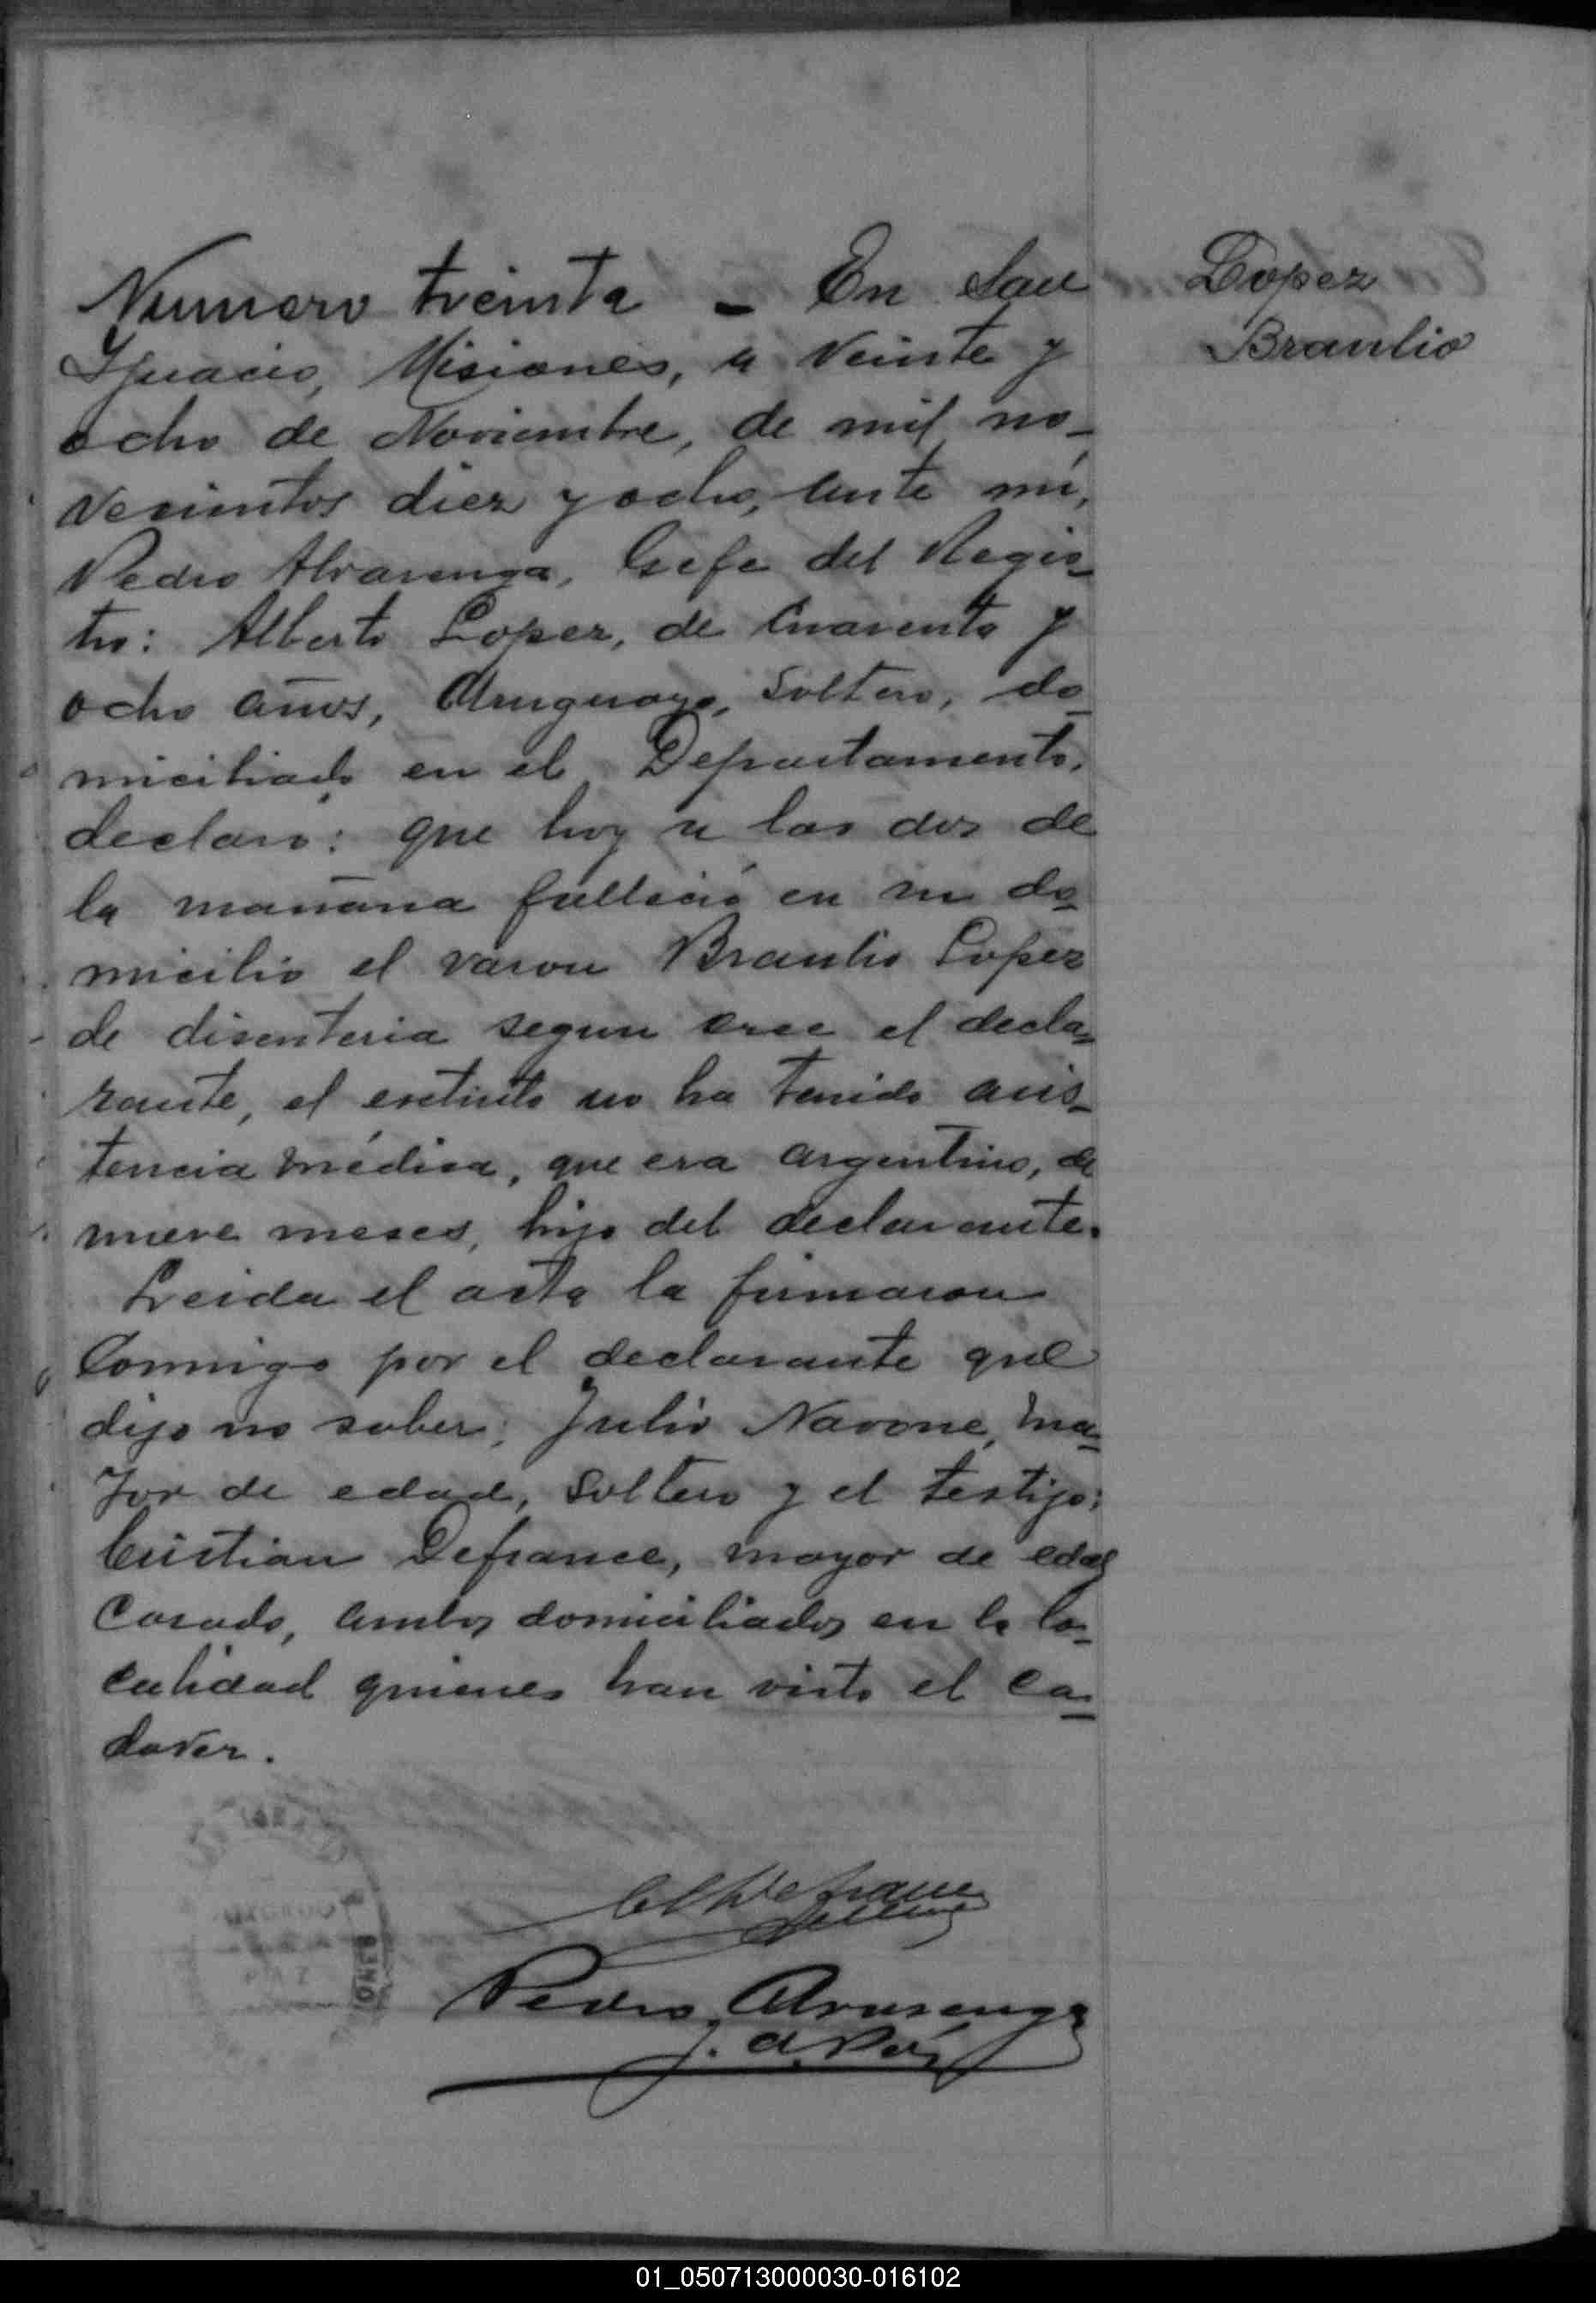 Numero treinta - En San
Ignacio, Misiones, a veinte y
ocho de Noviembre, de mil no-
vecientos diez y ocho, ante mí,
Pedro Alvarenga, Gefe del Regis-
tro: Alberto Lopez, de cuarenta y
ocho años, Uruguayo, soltero, do-
miciliado en el Departamento,
declaró: que hoy a las dos de
la mañana falleció en su do-
micilio el varon Braulio Lopez
de disenteria segun cree el decla-
rante, el extinto no ha tenido asis-
tencia médica, que era argentino, de
nueve meses, hijo del declarante.
Leida el acta la firmaron
conmigo por el declarante que
dijo no saber; Julio Navone, ma-
yor de edad, soltero y el testigo:
Cristian Defrance, mayor de edad
casado, ambos domiciliados en la lo-
calidad quienes han visto el ca-
daver.
Lopez
Braulio
Ch Defrance
Pedro Alvarenga
ONES
01_050713000030-016102